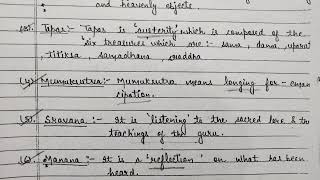 and heavenly objects.
(3) Tapas:- Tapas is 'austerity' which is composed of the
'six treasures which are:- sama, dama, uparati
Titiksa, Saryadhana, sraddha
(4) Mumuksutra:- Mumuksutra means longing for- eman
cipation.
(5) Sravana:- It is 'listening' to the sacred lore & the
teachings of the guru.
(6) Manana:- It is a 'reflection' on what has been
heard.